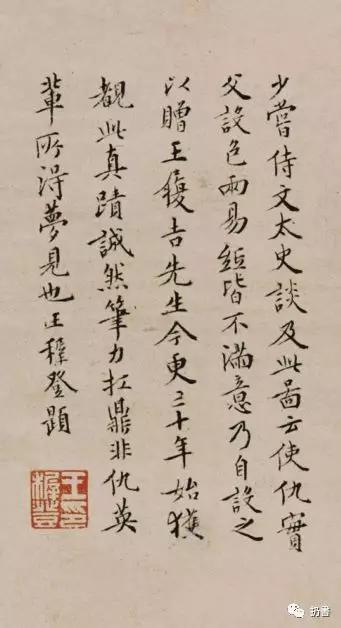 少嘗侍文太史談及此圖云使仇實
父設色兩易紙皆不滿意乃自設之
以贈王履吉先生今更三十年始獲
觀此真蹟誠然筆力扛鼎非仇英
輩所得夢見也王穉登題
王印穉登
扔書